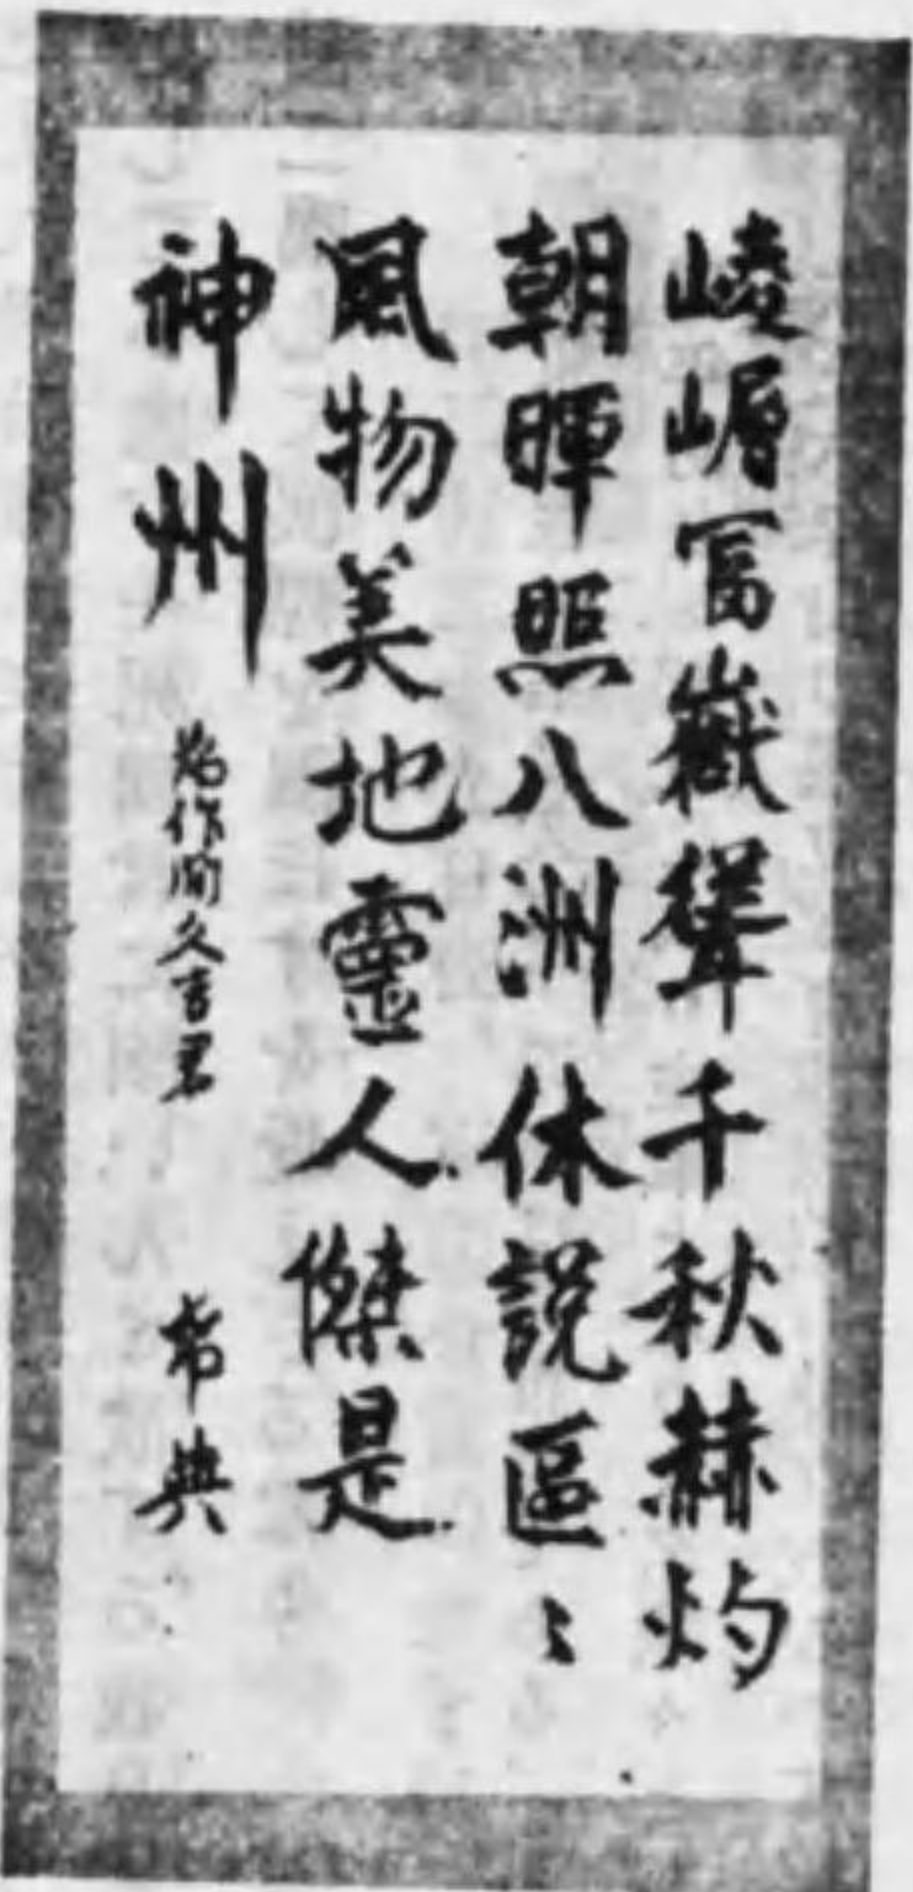 崚嶒冨嶽聳千秋赫灼
朝暉照八洲休説區〻
風物美地靈人傑是
神州 為作間久吉君 希典